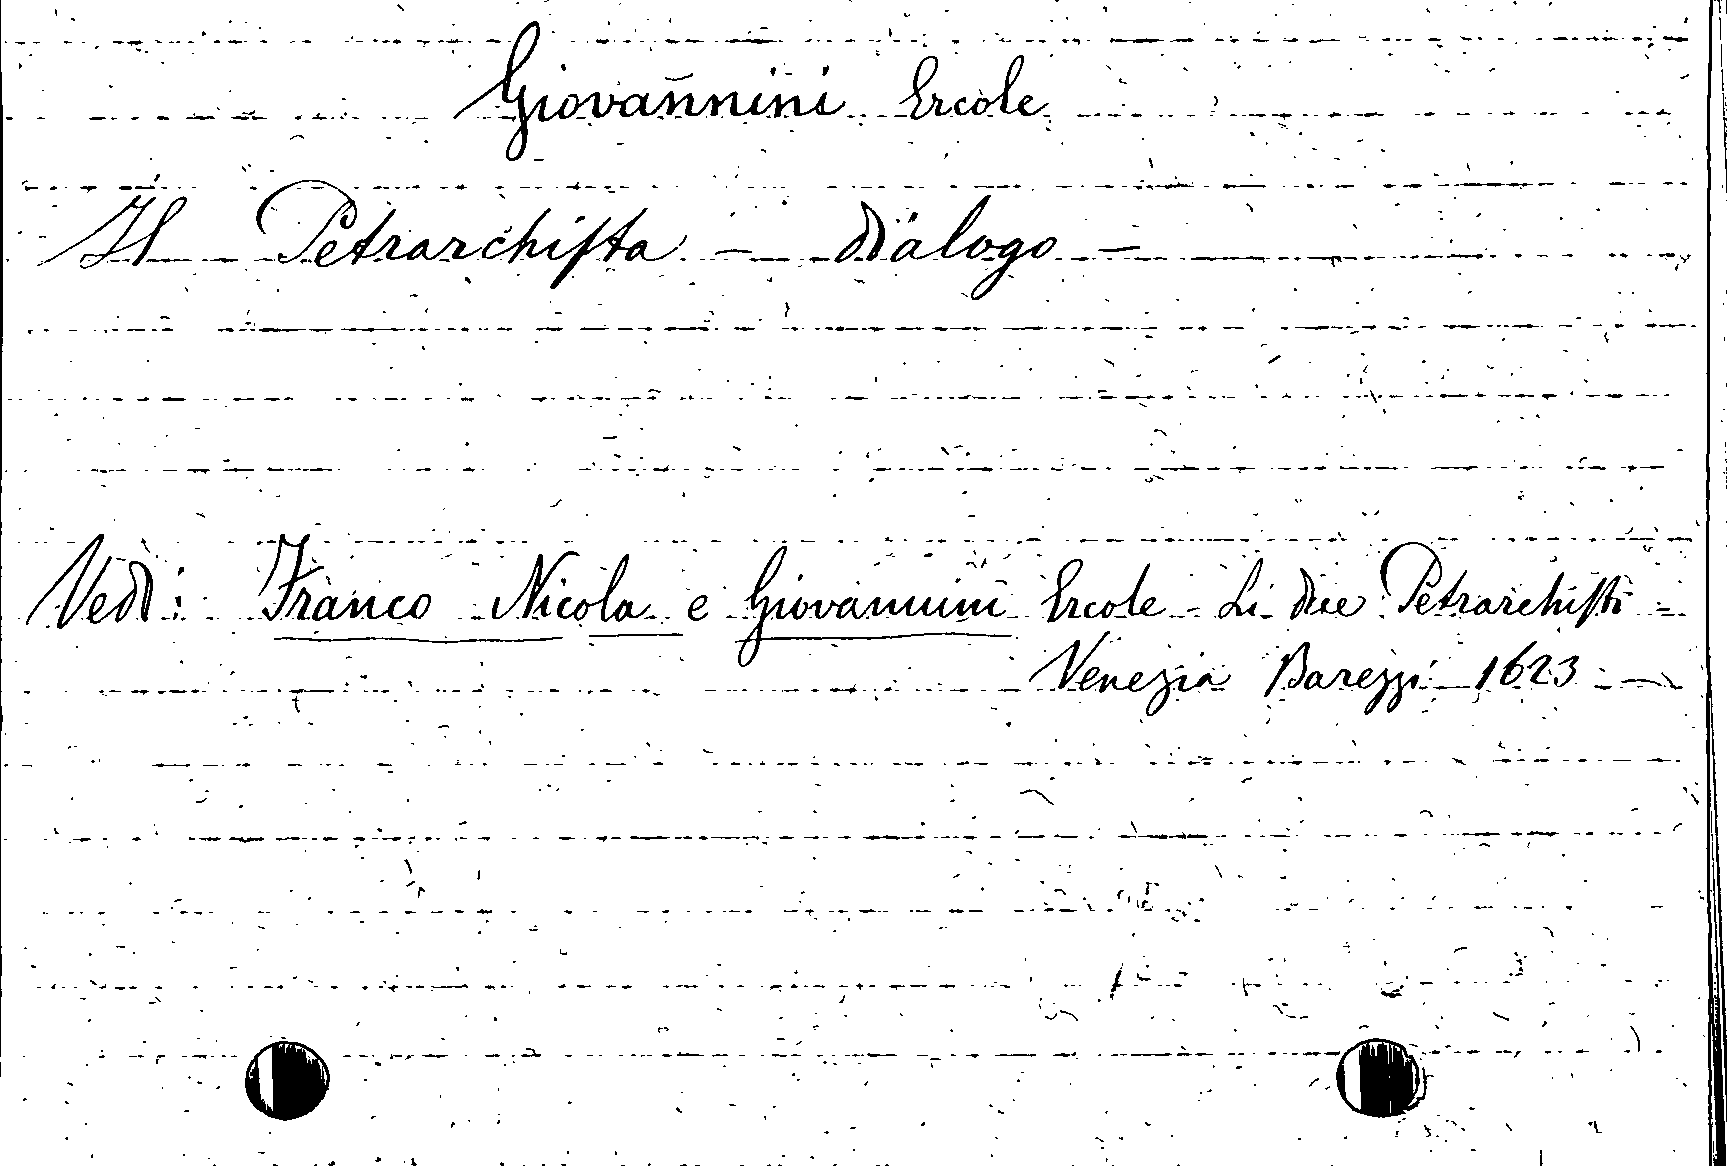 Giovannini Ercole
Il Petrarchista - dialogo -
Vedi: Franco Nicola e Giovannini Ercole - Li due Petrarchisti -
Venezia Barezzi 1623 -